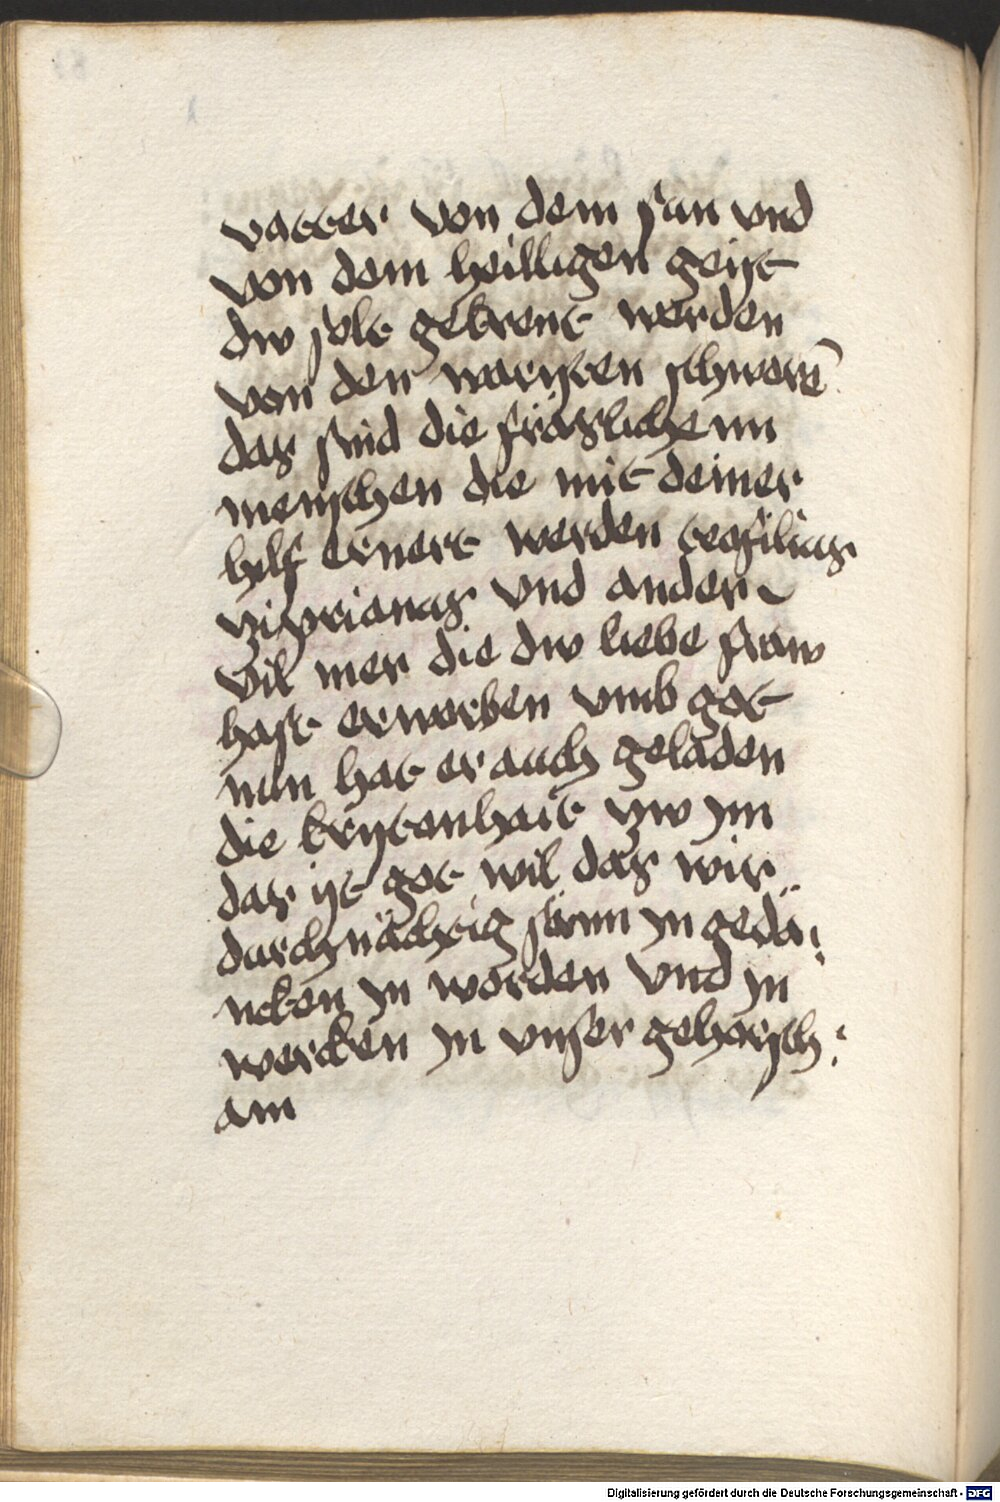 vatter von dem sun vnd
von dem heilligen geist
dw solt gekrent werden
von den warsten schwerē
das sind die fräslichenn
menschen die mit deiner
hilf ernert werden teofilius
ziprianus vnd ander
vil mer die dw liebe fraw
hast erworben vmb got
nun hat er auch geladen
die kristenhait zw ym
das ist got wil das wir
durchnächtig sinnn yn gedä:
ncken yn worden vnd yn
wercken yn vnser gehorsch:
am
Digitalisierung gefördert durch die Deutsche Forschungsgemeinschaft - DFG